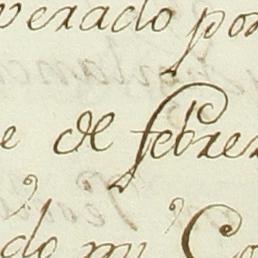 verado por
e de febrer
do mi Co